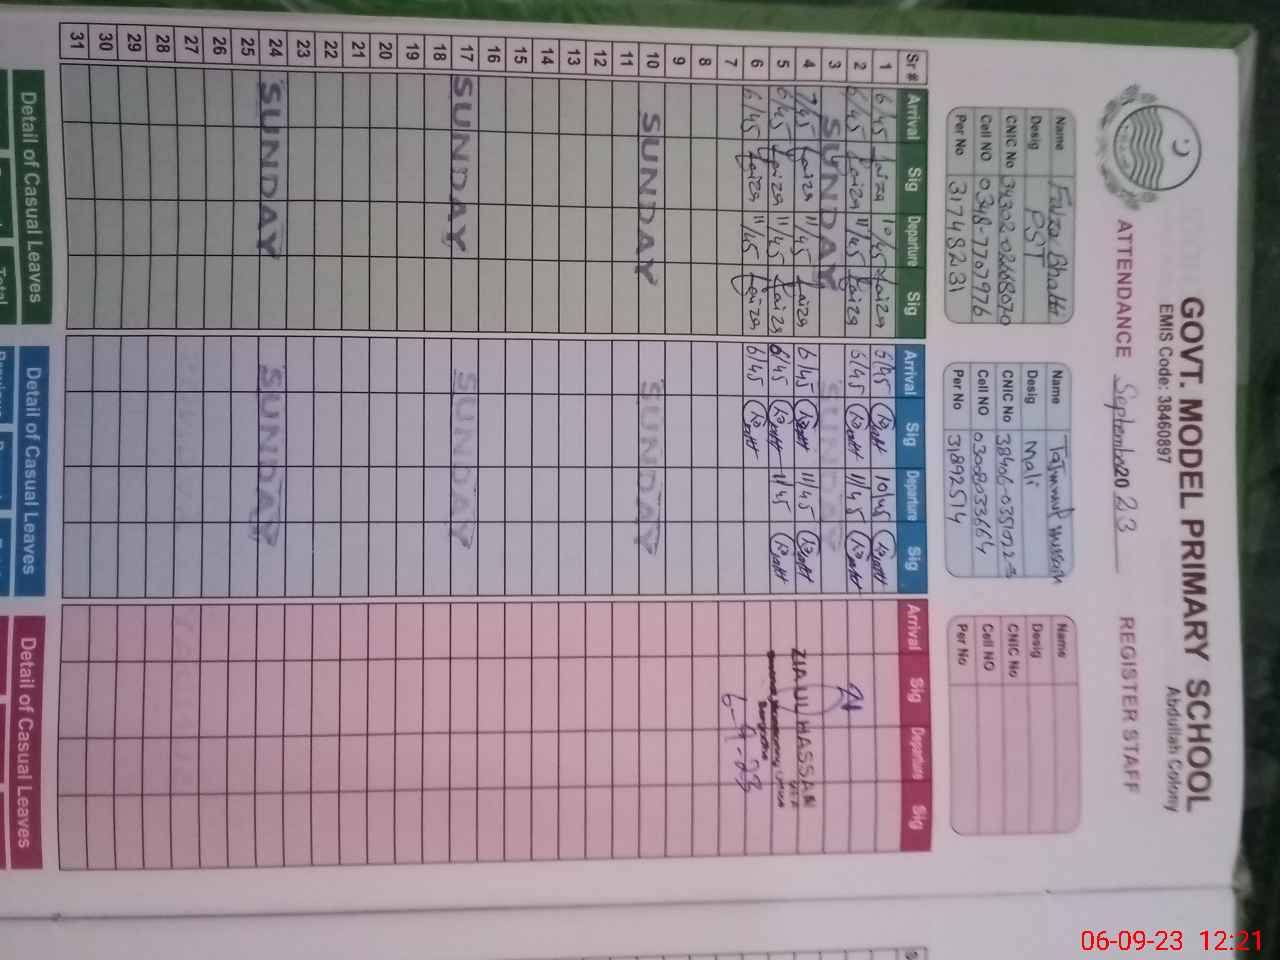 GOVT. MODEL PRIMARY SCHOOL
EMIS Code: 38460897 Abdullah Colony
ATTENDANCE September 2023 REGISTER STAFF
Name Faiza Bhatti
Desig PST
CNIC No 34302-0268807-0
Cell NO 0348-7707976
Per No 31748231
Name Tajmmul Hussain
Desig Mali
CNIC No 38406-0351072-3
Cell NO 03008033664
Per No 31892514
Name
Desig
CNIC No
Cell NO
Per No
Sr# Arrival Sig Departure Sig Arrival Sig Departure Sig Arrival Sig Departure Sig
1 6/45 Faiza 10/45 Faiza 6/45 10/45
2 6/45 Faiza 11/45 Faiza 6/45 11/45
3 SUNDAY SUNDAY
4 7/45 Faiza 11/45 Faiza 6/45 11/45 ZIAUL HASSAN
5 6/45 Faiza 11/45 Faiza 6/45 11/45
6 6/45 Faiza 11/45 Faiza 6/45
7 6-9-23
8
9
10 SUNDAY SUNDAY
11
12
13
14
15
16
17 SUNDAY SUNDAY
18
19
20
21
22
23
24 SUNDAY SUNDAY
25
26
27
28
29
30
31
Detail of Casual Leaves Detail of Casual Leaves Detail of Casual Leaves
Total
06-09-23 12:21